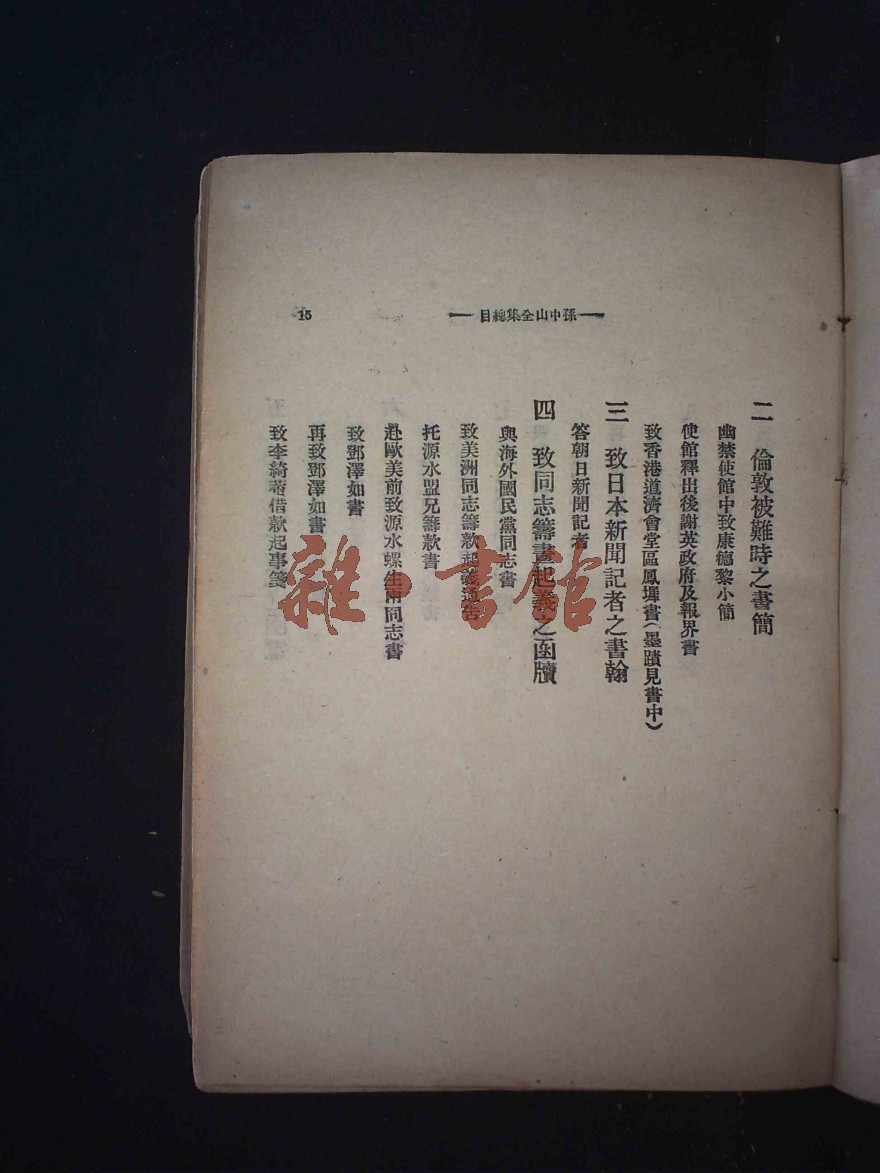 孫中山全集總目
15
二 倫敦被難時之書簡
幽禁使館中致康德黎小簡
使館釋出後謝英政府及報界書
致香港道濟會堂區鳳墀書(墨蹟見書中)
三 致日本新聞記者之書翰
答朝日新聞記者
四 致同志籌畫起義之函牘
與海外國民黨同志書
致美洲同志籌款起義通告
托源水盟兄籌款書
赴歐美前致源水螺生兩同志書
致鄧澤如書
再致鄧澤如書
致李綺菴借款起事箋
雜·書館